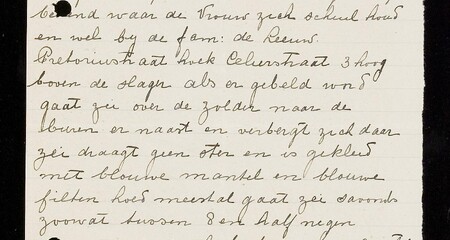 bekend waar de Vrouw zich schuil houd
en wel by de fam: de Leeuw.
Pretoriusstraat hoek Celierstraat 3 hoog
boven de slager als er gebeld word
gaat zei over de zolder naar de
buren er naast en verbergt zich daar
zei draagt geen ster en is gekleed
met blouwe mantel en blouwe
filten hoed meestal gaat zei savonds
zoowat tussen 8 en half negen